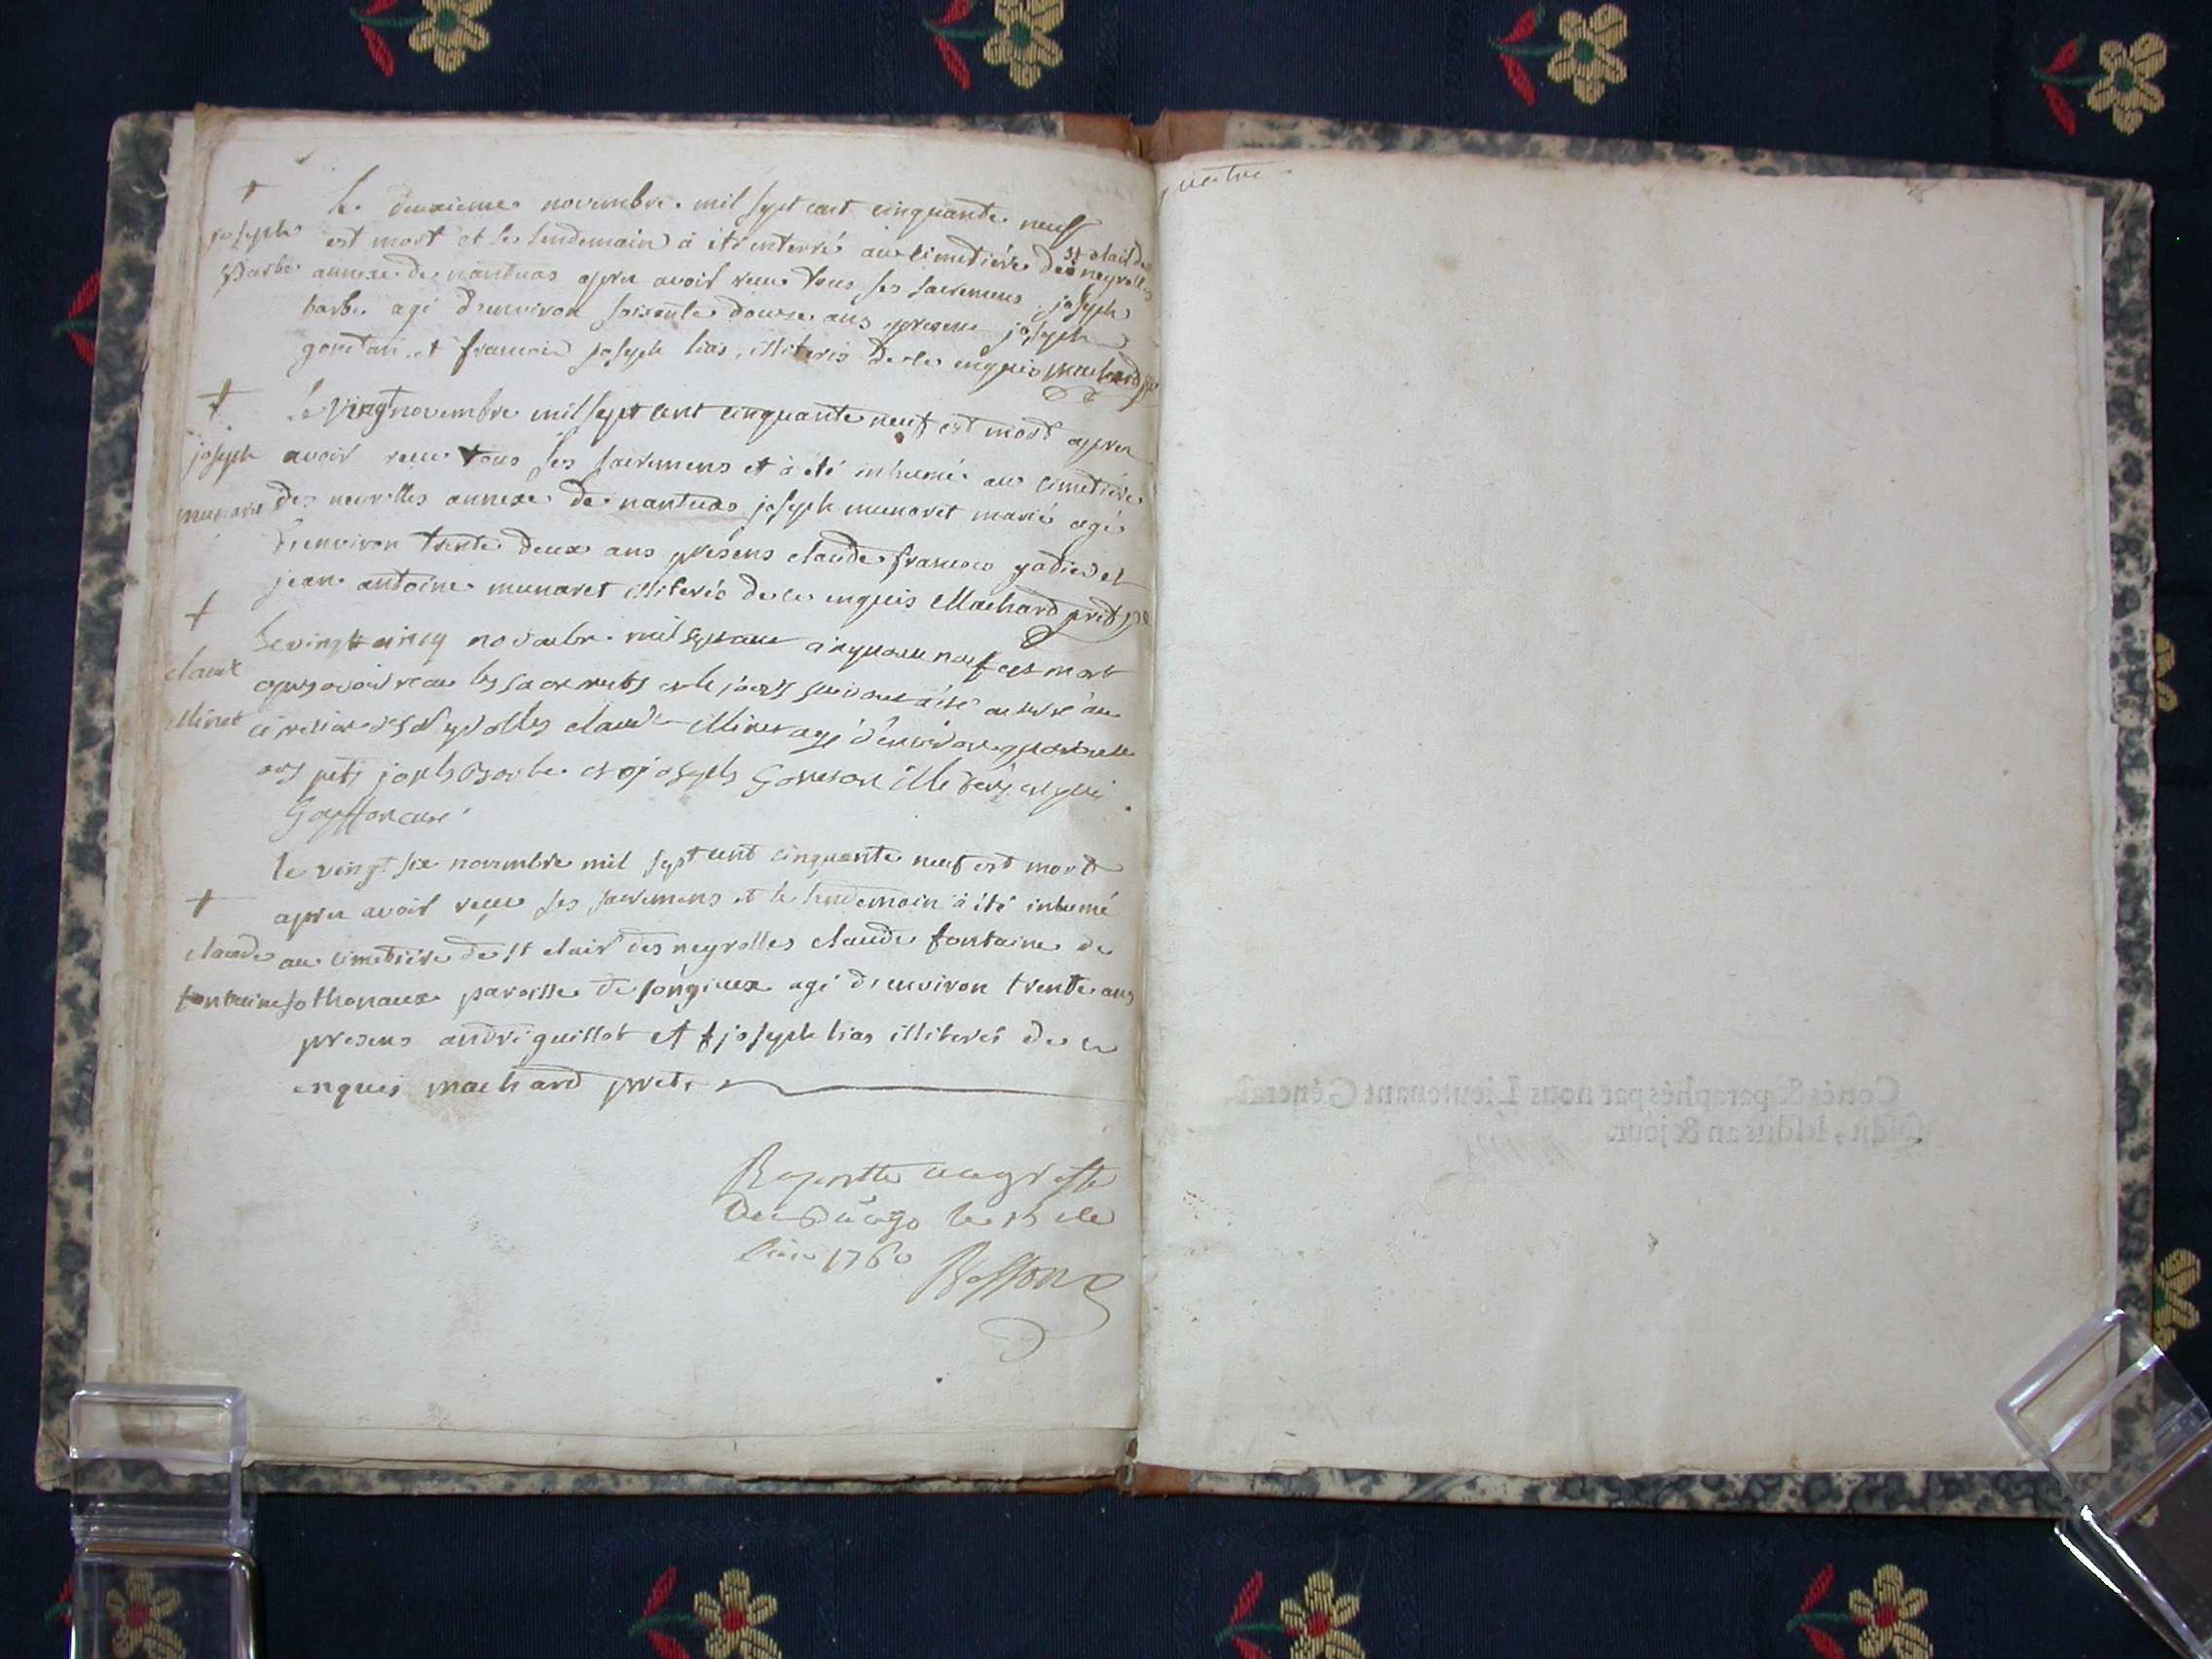 Le deuxieme novembre mil sept cent cinquante neuf
joseph est mort et le lendemain à été enterré au cimetiére de st clair des neyrolles
Barbe annexe de nantuas apres avoir receu tous ses sacremens joseph
barbe agé d'environ soisente douze ans presens joseph
et francois joseph lias, illiterés de ce enquis machard
Le vingt novembre mil sept cent cinquante neuf est mort apres
joseph avoir receu tous ses sacremens et à été inhumé au cimetiére
munaret des neyrolles annexe de nantuas joseph munaret marié agé
d'environ trente deux ans présens claude francois et
jean antoine munaret illiterés de ce enquis Machard prêt
Le vingt cinq novembre mil sept cent cinquante neuf est mort
claude apres avoir receu les sacrements et le jour suivant a été enterré au
Minet cimetiere des Neyrolles claude Minet agé d'environ
ans joseph Barbe et joseph illiterés enquis
curé
le vingt six novembre mil sept cent cinquante neuf est mort
apres avoir receu ses sacremens et le lendemain à été inhumé
claude au cimetiére de st clair des neyrolles claude fontaine de
fontaine sothonaux paroisse de songieux agé d'environ trente ans
presens andré guillot et f joseph lias illiterés de ce
enquis machard prêt
au greffe
le 15 de
1760 Besson
Cottés & paraphés par nous Lieutenant Général
susdit, lesdits an & jour.